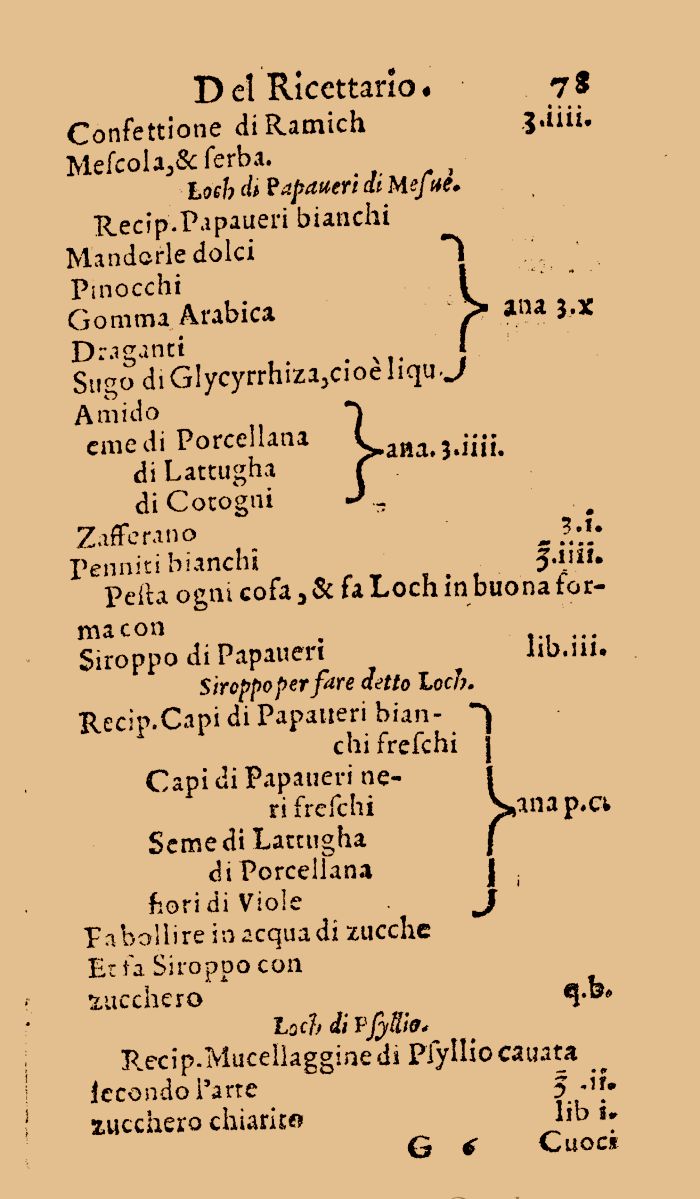 Del Ricettario. 78
Confettione di Ramich ʒ.iiii.
Meſcola,& ſerba.
Loch di Papaueri di Meſuè.
Recip.Papaueri bianchi
Mandorle dolci
Pinocchi
Gomma Arabica ana ʒ.x
Draganti
Sugo di Glycyrrhiza,cioè liqu.
Amido
eme di Porcellana ana. ʒ.iiii.
di Lattugha
di Cotogni
Zafferano ʒ.i.
Penniti bianchi ʒ̄.iiii.
Peſta ogni coſa, & fa Loch in buona for-
ma con
Siroppo di Papaueri lib.iii.
Siroppo per fare detto Loch.
Recip.Capi di Papaueri bian-
chi freſchi
Capi di Papaueri ne-
ri freſchi ana p.
Seme di Lattugha
di Porcellana
fiori di Viole
Fa bollire in acqua di zucche
Et fa Siroppo con
zucchero q.b.
Loch di Pſyllio.
Recip.Mucellaggine di Pſyllio cauata
ſecondo l'arte ʒ̄ .ii.
zucchero chiarito lib i.
G 6 Cuoci